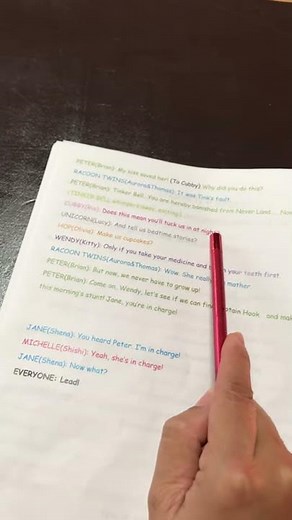 PETER(Brian): My kiss saved her! (To Cubby) Why did you do this?
RACOON TWINS(Aurora&Thomas): It was Tink's fault.
PETER(Brian): Tinker Bell. You are hereby banished from Never Land...
CUBBY(): Does this mean you'll tuck us in at night
UNICORN(Lucy): And tell us bedtime stories?
HOP(Olivia): Make us cupcakes?
WENDY(Kitty): Only if you take your medicine and your teeth first
RACOON TWINS(Aurora&Thomas): Wow. She really mother
PETER(Brian): But now, we never have to grow up!
PETER(Brian): Come on, Wendy, let's see if we can find Captain Hook and
this morning's stunt! Jane, you're in charge!
JANE(Shena): You heard Peter. I'm in charge!
MICHELLE(Shishi): Yeah, she's in charge!
JANE(Shena): Now what?
EVERYONE: Lead!